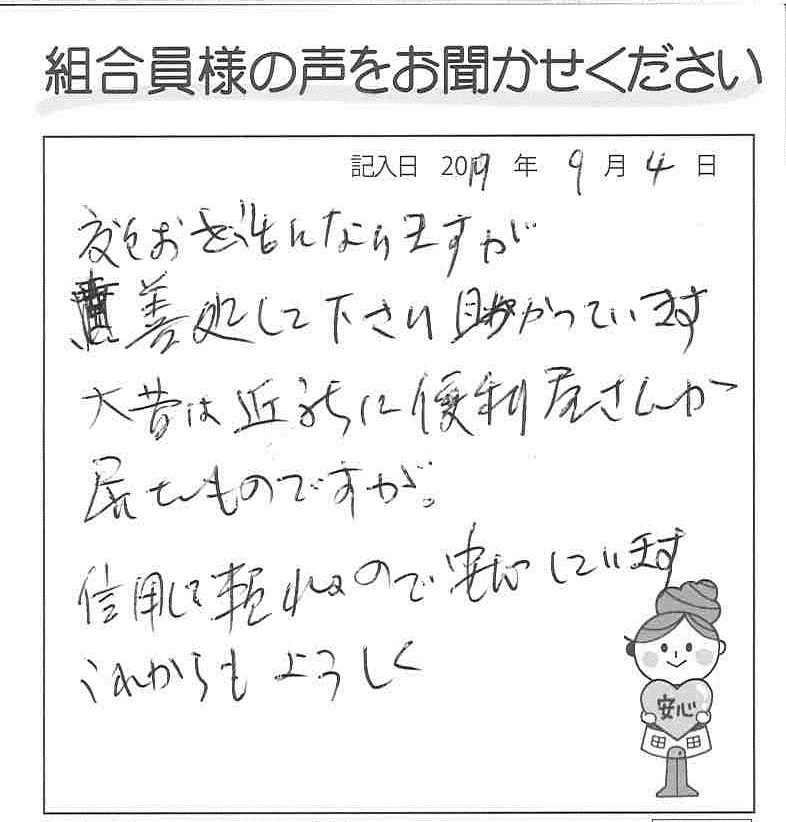 組合員様の声をお聞かせください
記入日 2019 年 9 月 4 日
度々お世話になりますが
善処して下さり助かっています
大昔は近所に便利屋さんが
居たものですが。
信用して頼れるので安心しています
これからもよろしく
安心